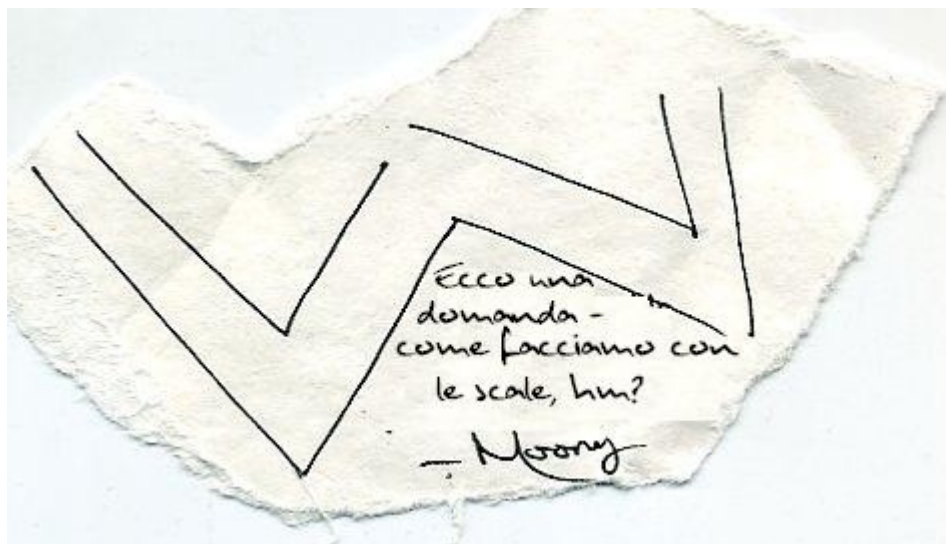 Ecco una
domanda -
come facciamo con
le scale, hm?
- Moony